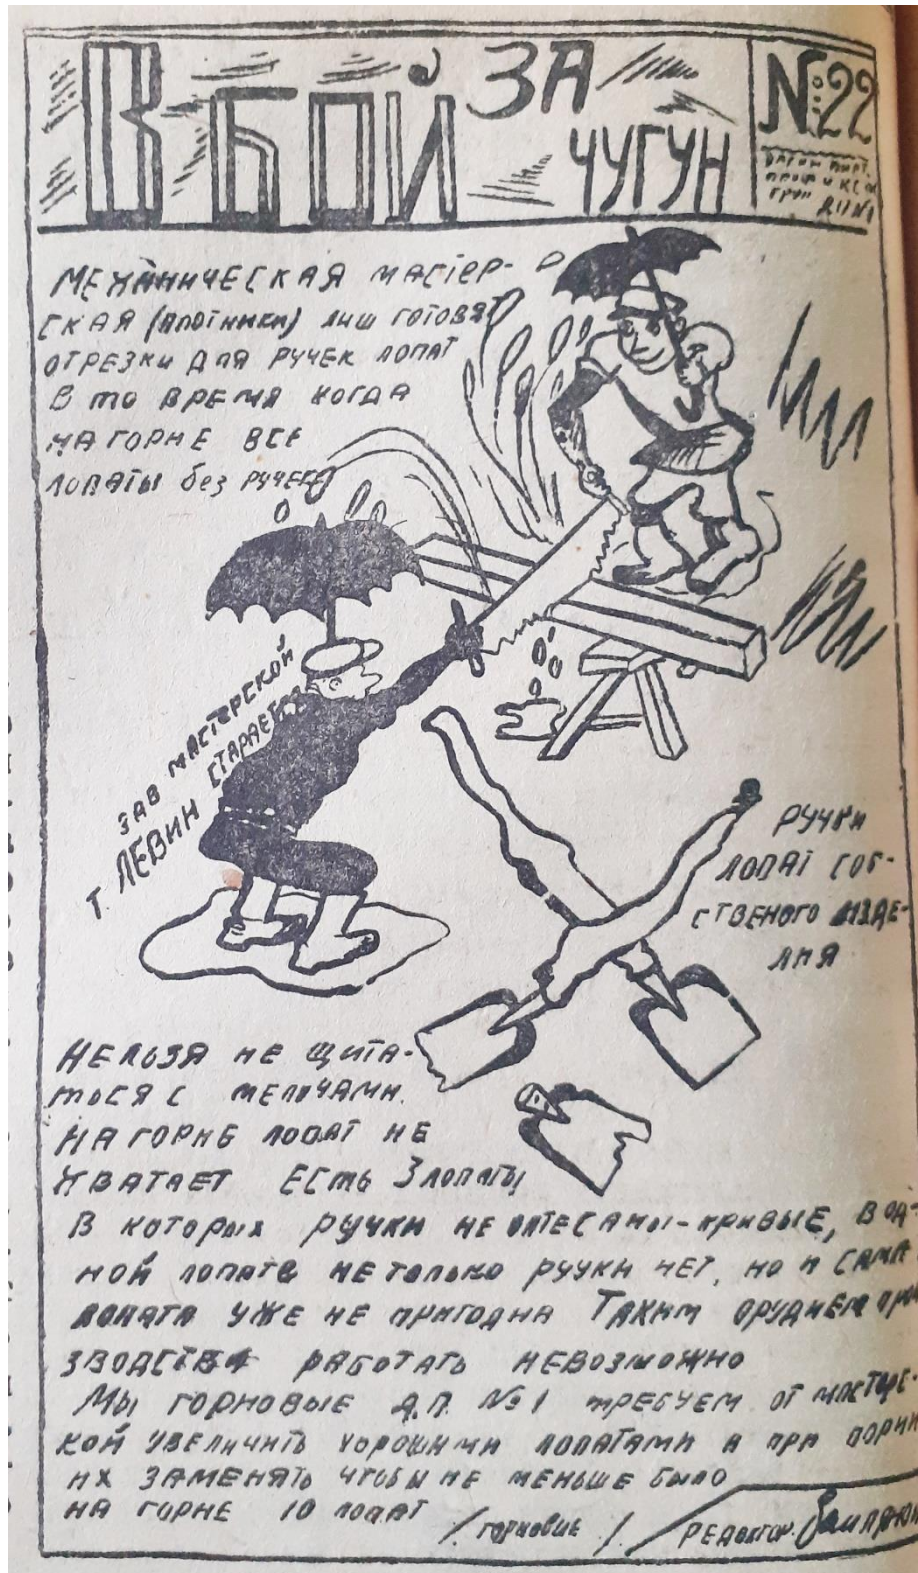 В БОЙ ЗА
ЧУГУН
№:22
ОРГАН ПАРТ.
ПРОФ И КСМ
ГРУП Д.П №1
МЕХАНИЧЕСКАЯ МАСТЕР-
СКАЯ (плотники) лиш готовят
ОТРЕЗКИ ДЛЯ РУЧЕК ЛОПАТ
В то ВРЕМЯ КОГДА
НА ГОРНЕ ВСЕ
ЛОПАТЫ без РУЧЕК
ЗАВ МАСТЕРСКОЙ
Т. ЛЕВИН СТАРАЕТСЯ
РУЧКИ
ЛОПАТ СОБ-
СТВЕНОГО ИЗДЕ-
ЛИЯ
НЕЛЬЗЯ НЕ ЩИТА-
ТЬСЯ С МЕЛОЧАМИ.
НА ГОРНЕ ЛОПАТ НЕ
ХВАТАЕТ ЕСТЬ 3 ЛОПАТЫ
В КОТОРЫХ РУЧКИ НЕ ОТЕСАНЫ-КРИВЫЕ, В ОД-
НОЙ ЛОПАТЕ НЕ ТОЛЬКО РУЧКИ НЕТ, НО И САМА
ЛОПАТА УЖЕ НЕ ПРИГОДНА ТАКИМ ОРУДИЕМ
ЗВОДСТВА РАБОТАТЬ НЕВОЗМОЖНО
МЫ ГОРНОВЫЕ Д.П. №1 ТРЕБУЕМ ОТ МАСТЕРС-
КОЙ УВЕЛИЧИТЬ ХОРОШИМИ ЛОПАТАМИ И ПРИ
ИХ ЗАМЕНЯТЬ ЧТОБЫ НЕ МЕНЬШЕ БЫЛО
НА ГОРНЕ 10 ЛОПАТ
/ГОРНОВЫЕ/
РЕДАКТОР.